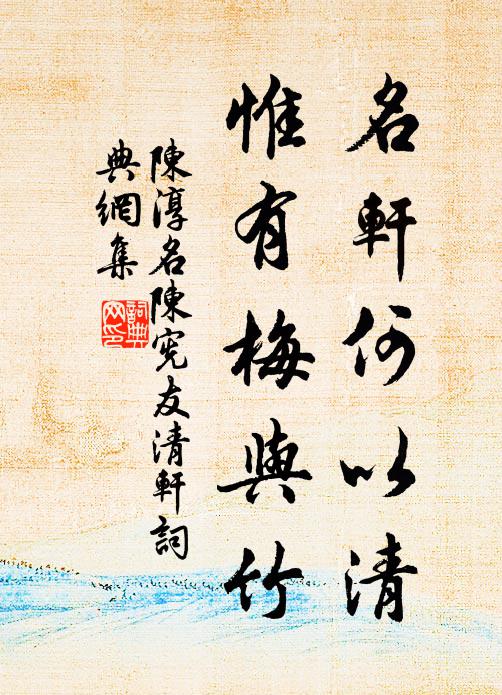 名軒何以清
惟有梅與竹
陳淳名陳憲友清軒詞
典網集
詞典
网印